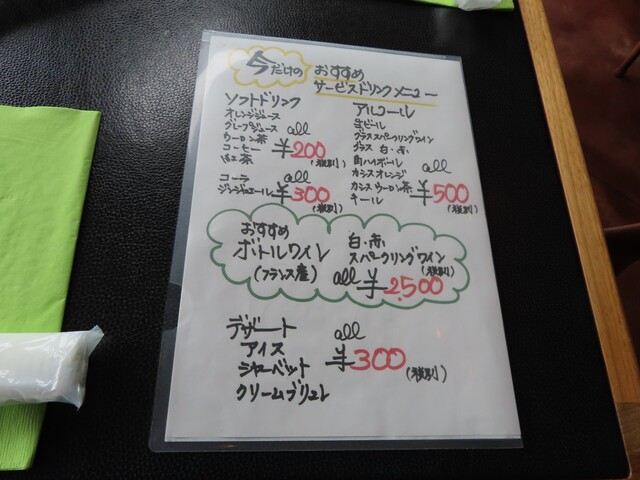 今だけの おすすめ
サービスドリンクメニュー
ソフトドリンク
オレンジジュース
グレープジュース
ウーロン茶
コーヒー
紅茶
all
¥200
(税別)
コーラ
ジンジャエール
all
¥300
(税別)
アルコール
生ビール
グラススパークリングワイン
グラス 白・赤
角ハイボール
カシスオレンジ
カシスウーロン茶
キール
all
¥500
(税別)
おすすめ
ボトルワイン
(フランス産)
白・赤
スパークリングワイン
(税別)
all ¥2,500
デザート
アイス
シャーベット
クリームブリュレ
all
¥300
(税別)